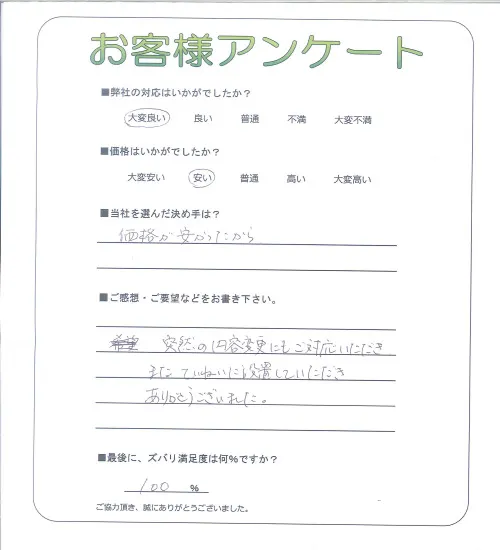 お客様アンケート
■弊社の対応はいかがでしたか？
大変良い 良い 普通 不満 大変不満
■価格はいかがでしたか？
大変安い 安い 普通 高い 大変高い
■当社を選んだ決め手は？
価格が安かったから
■ご感想・ご要望などをお書き下さい。
希望 突然の内容変更にもご対応いただき
また ていねいに設置していただき
ありがとうございました。
■最後に、ズバリ満足度は何％ですか？
100 ％
ご協力頂き、誠にありがとうございました。